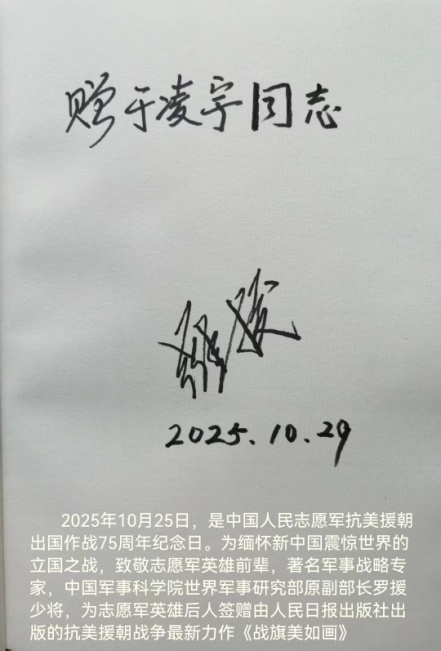 赠于凌宇同志
罗援
2025.10.29
2025年10月25日，是中国人民志愿军抗美援朝
出国作战75周年纪念日。为缅怀新中国震惊世界的
立国之战，致敬志愿军英雄前辈，著名军事战略专
家，中国军事科学院世界军事研究部原副部长罗援
少将，为志愿军英雄后人签赠由人民日报出版社出
版的抗美援朝战争最新力作《战旗美如画》